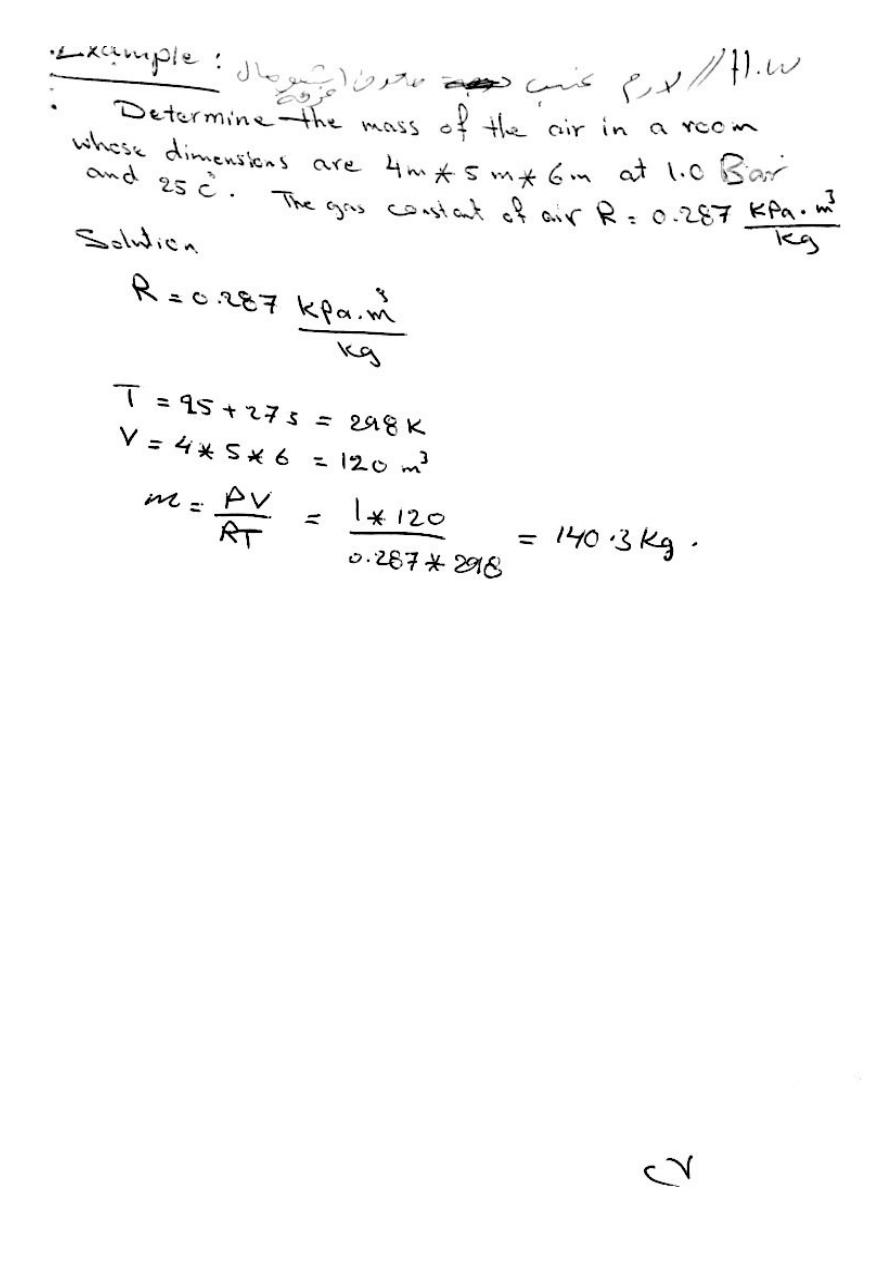 Example : H.W
Determine the mass of the air in a room
whose dimensions are 4m * 5m * 6m at 1.0 Bar
and 25 C°. The gas constant of air R = 0.287 kPa.m³/kg
Solution
R = 0.287 kPa.m³/kg
T = 25 + 273 = 298 K
V = 4 * 5 * 6 = 120 m³
m = PV/RT = 1 * 120/0.287 * 298 = 140.3 Kg.